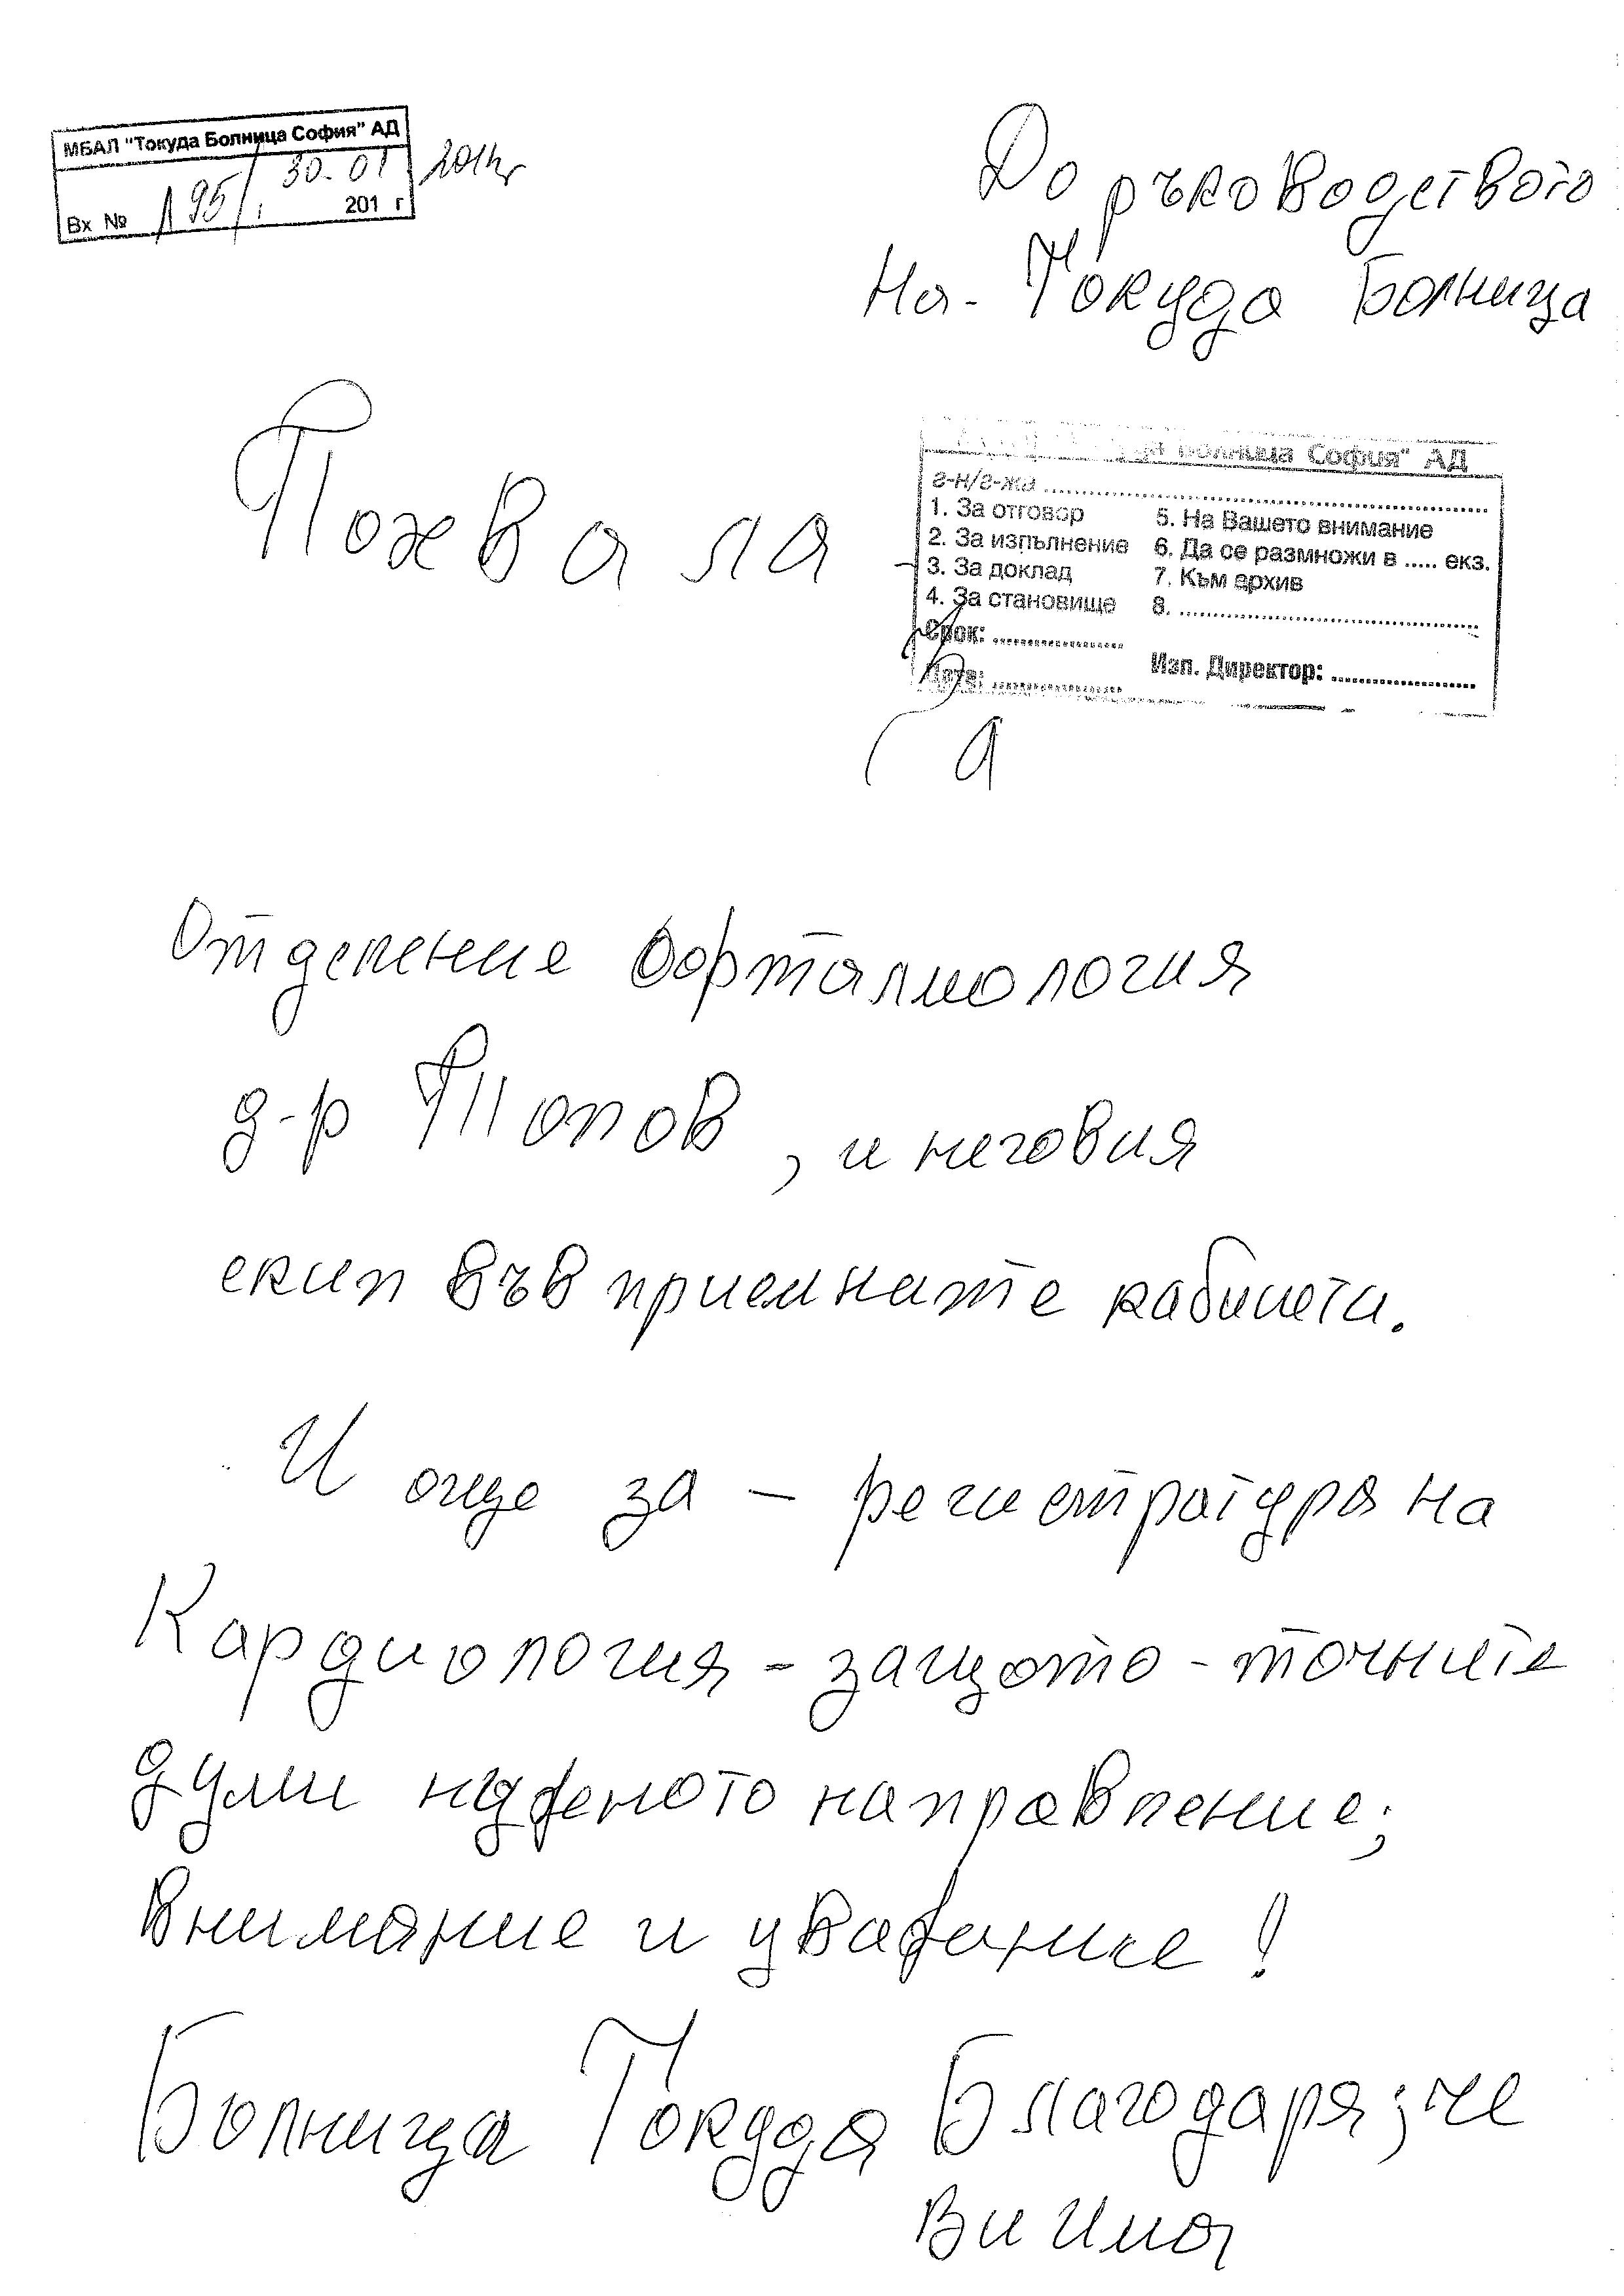 МБАЛ "Токуда Болница София" АД
30.01 2014г
Вх № 195/ 201 г
До ръководството
На - Токуда Болница
Похвала
болница София" АД
г-н/г-жа ..........
1. За отговор 5. На Вашето внимание
2. За изпълнение 6. Да се размножи в ..... екз.
3. За доклад 7. Към архив
4. За становище 8. ..........
Срок: ..........
Дата: .......... Изп. Директор: ..........
Отделение Оофталмология
д-р Попов, и неговия
екип във приемните кабинети.
И още за - регистратура на
Кардиология - защото - точните
думи нужното направление;
внимание и уважение!
Болница Токуда Благодаря; че
Ви Има